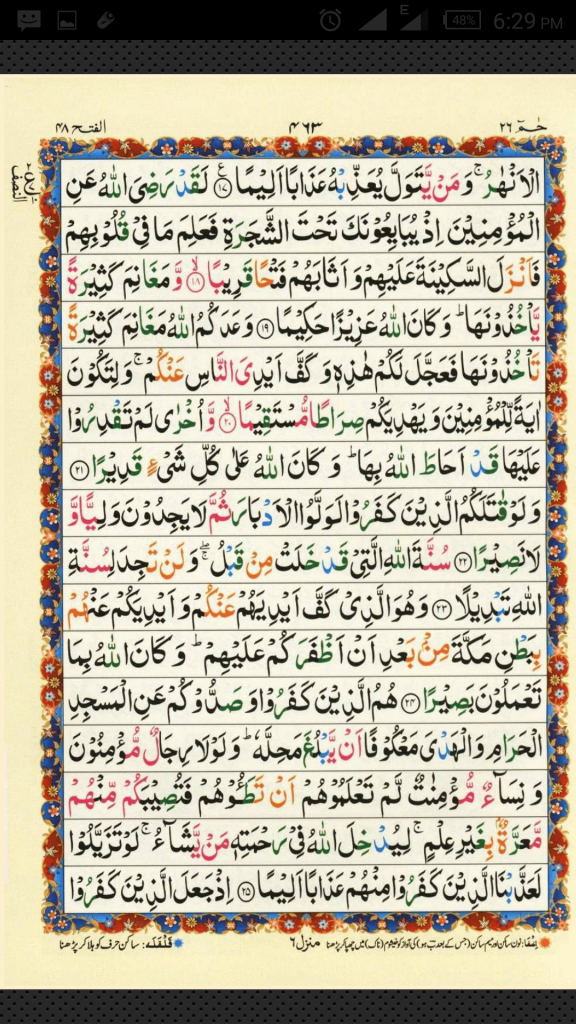 E
48%
6:29 PM
حٰمٓ ٢٦
٤٦٣
الفتح ٤٨
النصف
الْاَنْهٰرُ ۚ وَمَنْ يَّتَوَلَّ يُعَذِّبْهُ عَذَابًا اَلِيْمًا ﴿١٧﴾ لَقَدْ رَضِىَ اللّٰهُ عَنِ
الْمُؤْمِنِيْنَ اِذْ يُبَايِعُوْنَكَ تَحْتَ الشَّجَرَةِ فَعَلِمَ مَا فِىْ قُلُوْبِهِمْ
فَاَنْزَلَ السَّكِيْنَةَ عَلَيْهِمْ وَ اَثَابَهُمْ فَتْحًا قَرِيْبًا ﴿١٨﴾ۙ وَّ مَغَانِمَ كَثِيْرَةً
يَّاْخُذُوْنَهَا ؕ وَ كَانَ اللّٰهُ عَزِيْزًا حَكِيْمًا ﴿١٩﴾ وَعَدَكُمُ اللّٰهُ مَغَانِمَ كَثِيْرَةً
تَاْخُذُوْنَهَا فَعَجَّلَ لَكُمْ هٰذِهٖ وَ كَفَّ اَيْدِىَ النَّاسِ عَنْكُمْ ۚ وَ لِتَكُوْنَ
اٰيَةً لِّلْمُؤْمِنِيْنَ وَ يَهْدِيَكُمْ صِرَاطًا مُّسْتَقِيْمًا ﴿٢٠﴾ۙ وَّ اُخْرٰى لَمْ تَقْدِرُوْا
عَلَيْهَا قَدْ اَحَاطَ اللّٰهُ بِهَا ؕ وَ كَانَ اللّٰهُ عَلٰى كُلِّ شَىْءٍ قَدِيْرًا ﴿٢١﴾
وَ لَوْ قٰتَلَكُمُ الَّذِيْنَ كَفَرُوْا لَوَلَّوُا الْاَدْبَارَ ثُمَّ لَا يَجِدُوْنَ وَلِيًّا وَّ
لَا نَصِيْرًا ﴿٢٢﴾ سُنَّةَ اللّٰهِ الَّتِىْ قَدْ خَلَتْ مِنْ قَبْلُ ۖۚ وَ لَنْ تَجِدَ لِسُنَّةِ
اللّٰهِ تَبْدِيْلًا ﴿٢٣﴾ وَ هُوَ الَّذِىْ كَفَّ اَيْدِيَهُمْ عَنْكُمْ وَ اَيْدِيَكُمْ عَنْهُمْ
بِبَطْنِ مَكَّةَ مِنْۢ بَعْدِ اَنْ اَظْفَرَكُمْ عَلَيْهِمْ ؕ وَ كَانَ اللّٰهُ بِمَا
تَعْمَلُوْنَ بَصِيْرًا ﴿٢٤﴾ هُمُ الَّذِيْنَ كَفَرُوْا وَ صَدُّوْكُمْ عَنِ الْمَسْجِدِ
الْحَرَامِ وَ الْهَدْىَ مَعْكُوْفًا اَنْ يَّبْلُغَ مَحِلَّهٗ ؕ وَ لَوْ لَا رِجَالٌ مُّؤْمِنُوْنَ
وَ نِسَآءٌ مُّؤْمِنٰتٌ لَّمْ تَعْلَمُوْهُمْ اَنْ تَطَـُٔوْهُمْ فَتُصِيْبَكُمْ مِّنْهُمْ
مَّعَرَّةٌۢ بِغَيْرِ عِلْمٍ ۚ لِيُدْخِلَ اللّٰهُ فِىْ رَحْمَتِهٖ مَنْ يَّشَآءُ ۚ لَوْ تَزَيَّلُوْا
لَعَذَّبْنَا الَّذِيْنَ كَفَرُوْا مِنْهُمْ عَذَابًا اَلِيْمًا ﴿٢٥﴾ اِذْ جَعَلَ الَّذِيْنَ كَفَرُوْا
اِخفَا: نون ساکن اور میم ساکن (جس کے بعد ب ہو) کی آواز کو خیشوم (ناک) میں چھپا کر پڑھنا
منزل ٦
قَلْقَلَه: ساکن حرف کو ہلا کر پڑھنا